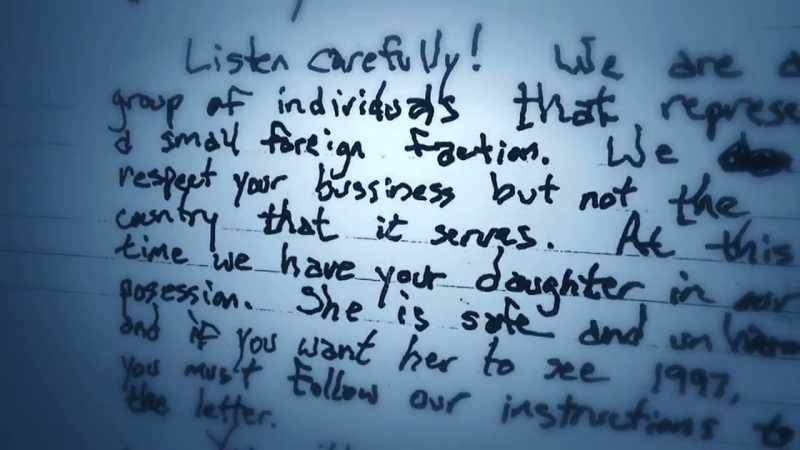 Listen carefully! We are a
group of individuals that represe
a small foreign faction. We
respect your bussiness but not the
country that it serves. At this
time we have your daughter in our
posession. She is safe and un harm
and if you want her to see 1997,
you must follow our instructions to
the letter.